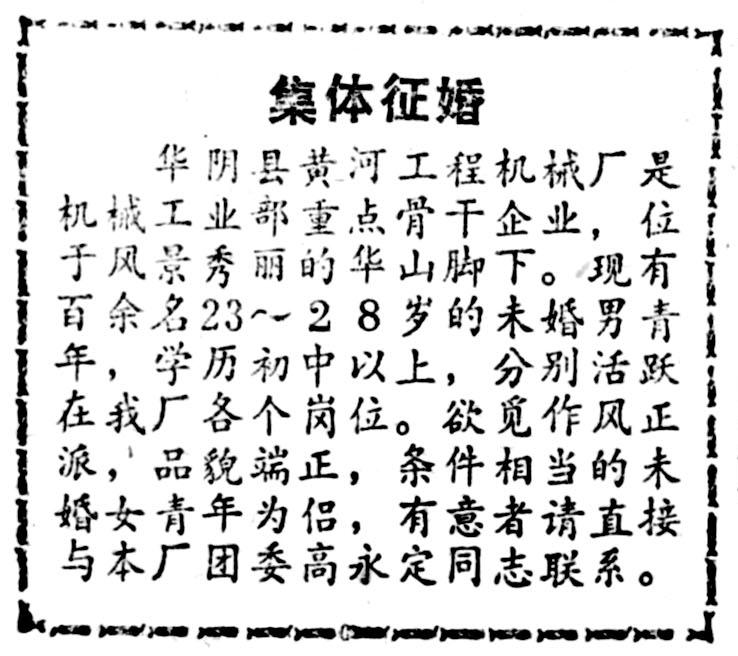 集体征婚
华阴县黄河工程机械厂是
机械工业部重点骨干企业，位
于风景秀丽的华山脚下。现有
百余名23～28岁的未婚男青
年，学历初中以上，分别活跃
在我厂各个岗位。欲觅作风正
派，品貌端正，条件相当的未
婚女青年为侣，有意者请直接
与本厂团委高永定同志联系。